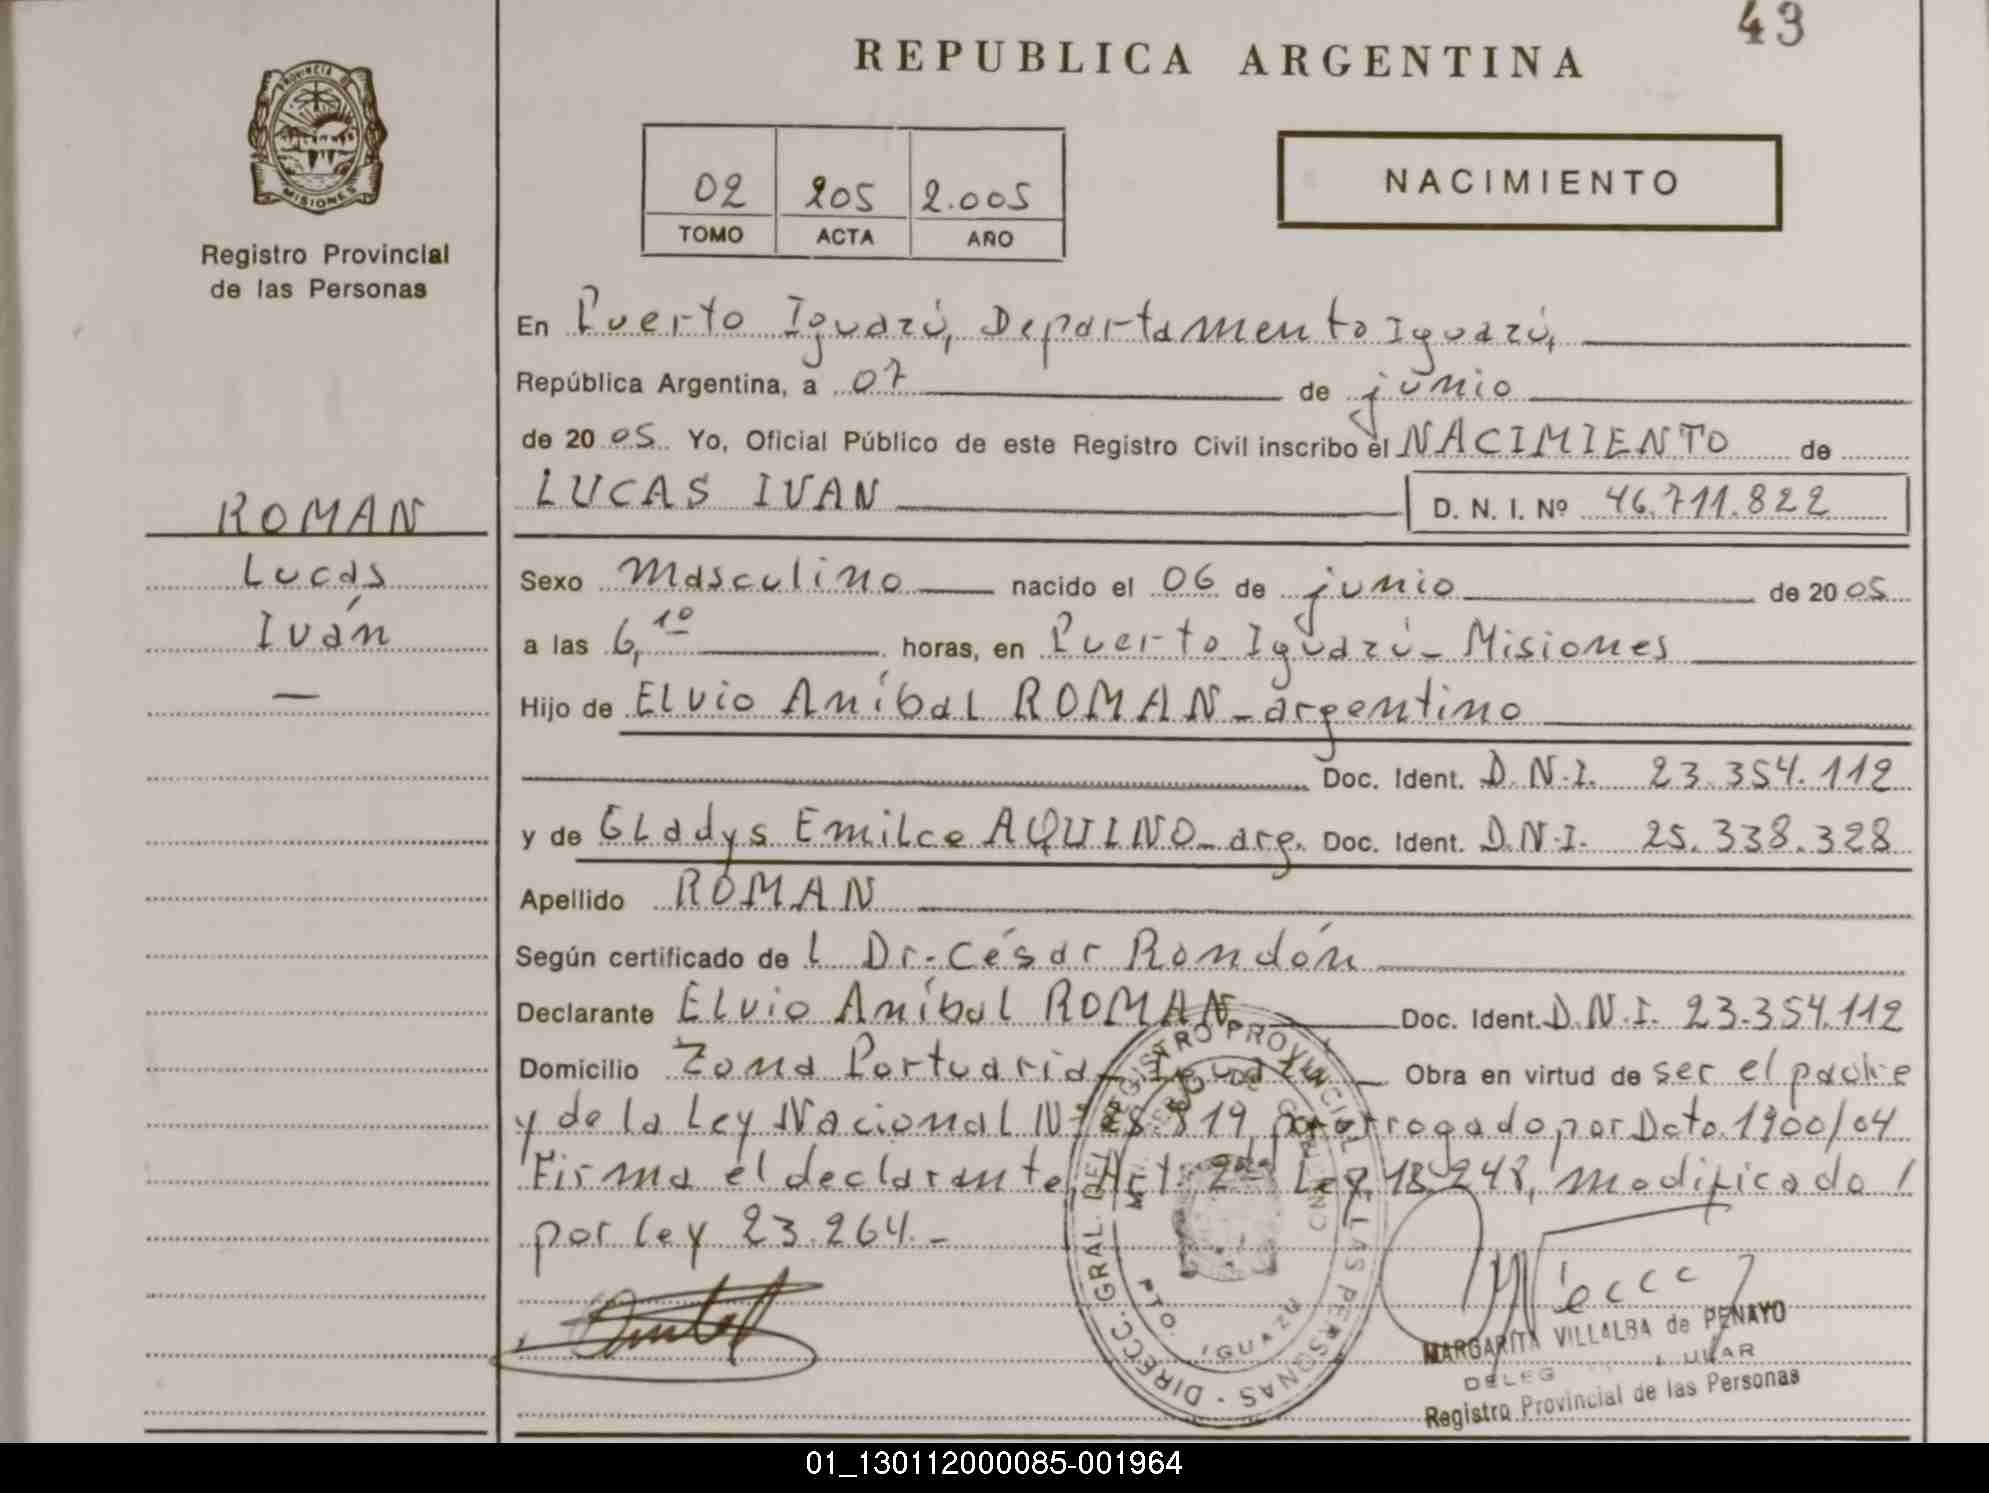 43
REPUBLICA ARGENTINA
PROVINCIA DE
MISIONES
Registro Provincial
de las Personas
02 205 2.005
TOMO ACTA AÑO
NACIMIENTO
En Puerto Iguazú, Departamento Iguazú,
República Argentina, a 07 de junio
de 2005 Yo, Oficial Público de este Registro Civil inscribo el NACIMIENTO de
LUCAS IVAN D. N. I. Nº 46.711.822
ROMAN
Lucas
Iván
Sexo Masculino nacido el 06 de junio de 2005
a las 6,10 horas, en Puerto Iguazú - Misiones
Hijo de Elvio Aníbal ROMAN - argentino
Doc. Ident. D.N.I. 23.354.112
y de Gladys Emilce AQUINO - arg. Doc. Ident. D.N.I. 25.338.328
Apellido ROMAN
Según certificado de l Dr. César Rondón
Declarante Elvio Aníbal ROMAN Doc. Ident. D.N.I. 23.354.112
Domicilio Zona Portuaria - Iguazú - Obra en virtud de ser el padre
y de la Ley Nacional Nº 25.819, prorrogado por Dcto. 1900/04
Firma el declarante, Art. 2do Ley 18.248, modificado /
por ley 23.264.-
DIRECC. GRAL. DEL REGISTRO PROVINCIAL DE LAS PERSONAS
PTO. IGUAZU
MARGARITA VILLALBA de PENAYO
Registro Provincial de las Personas
01_130112000085-001964